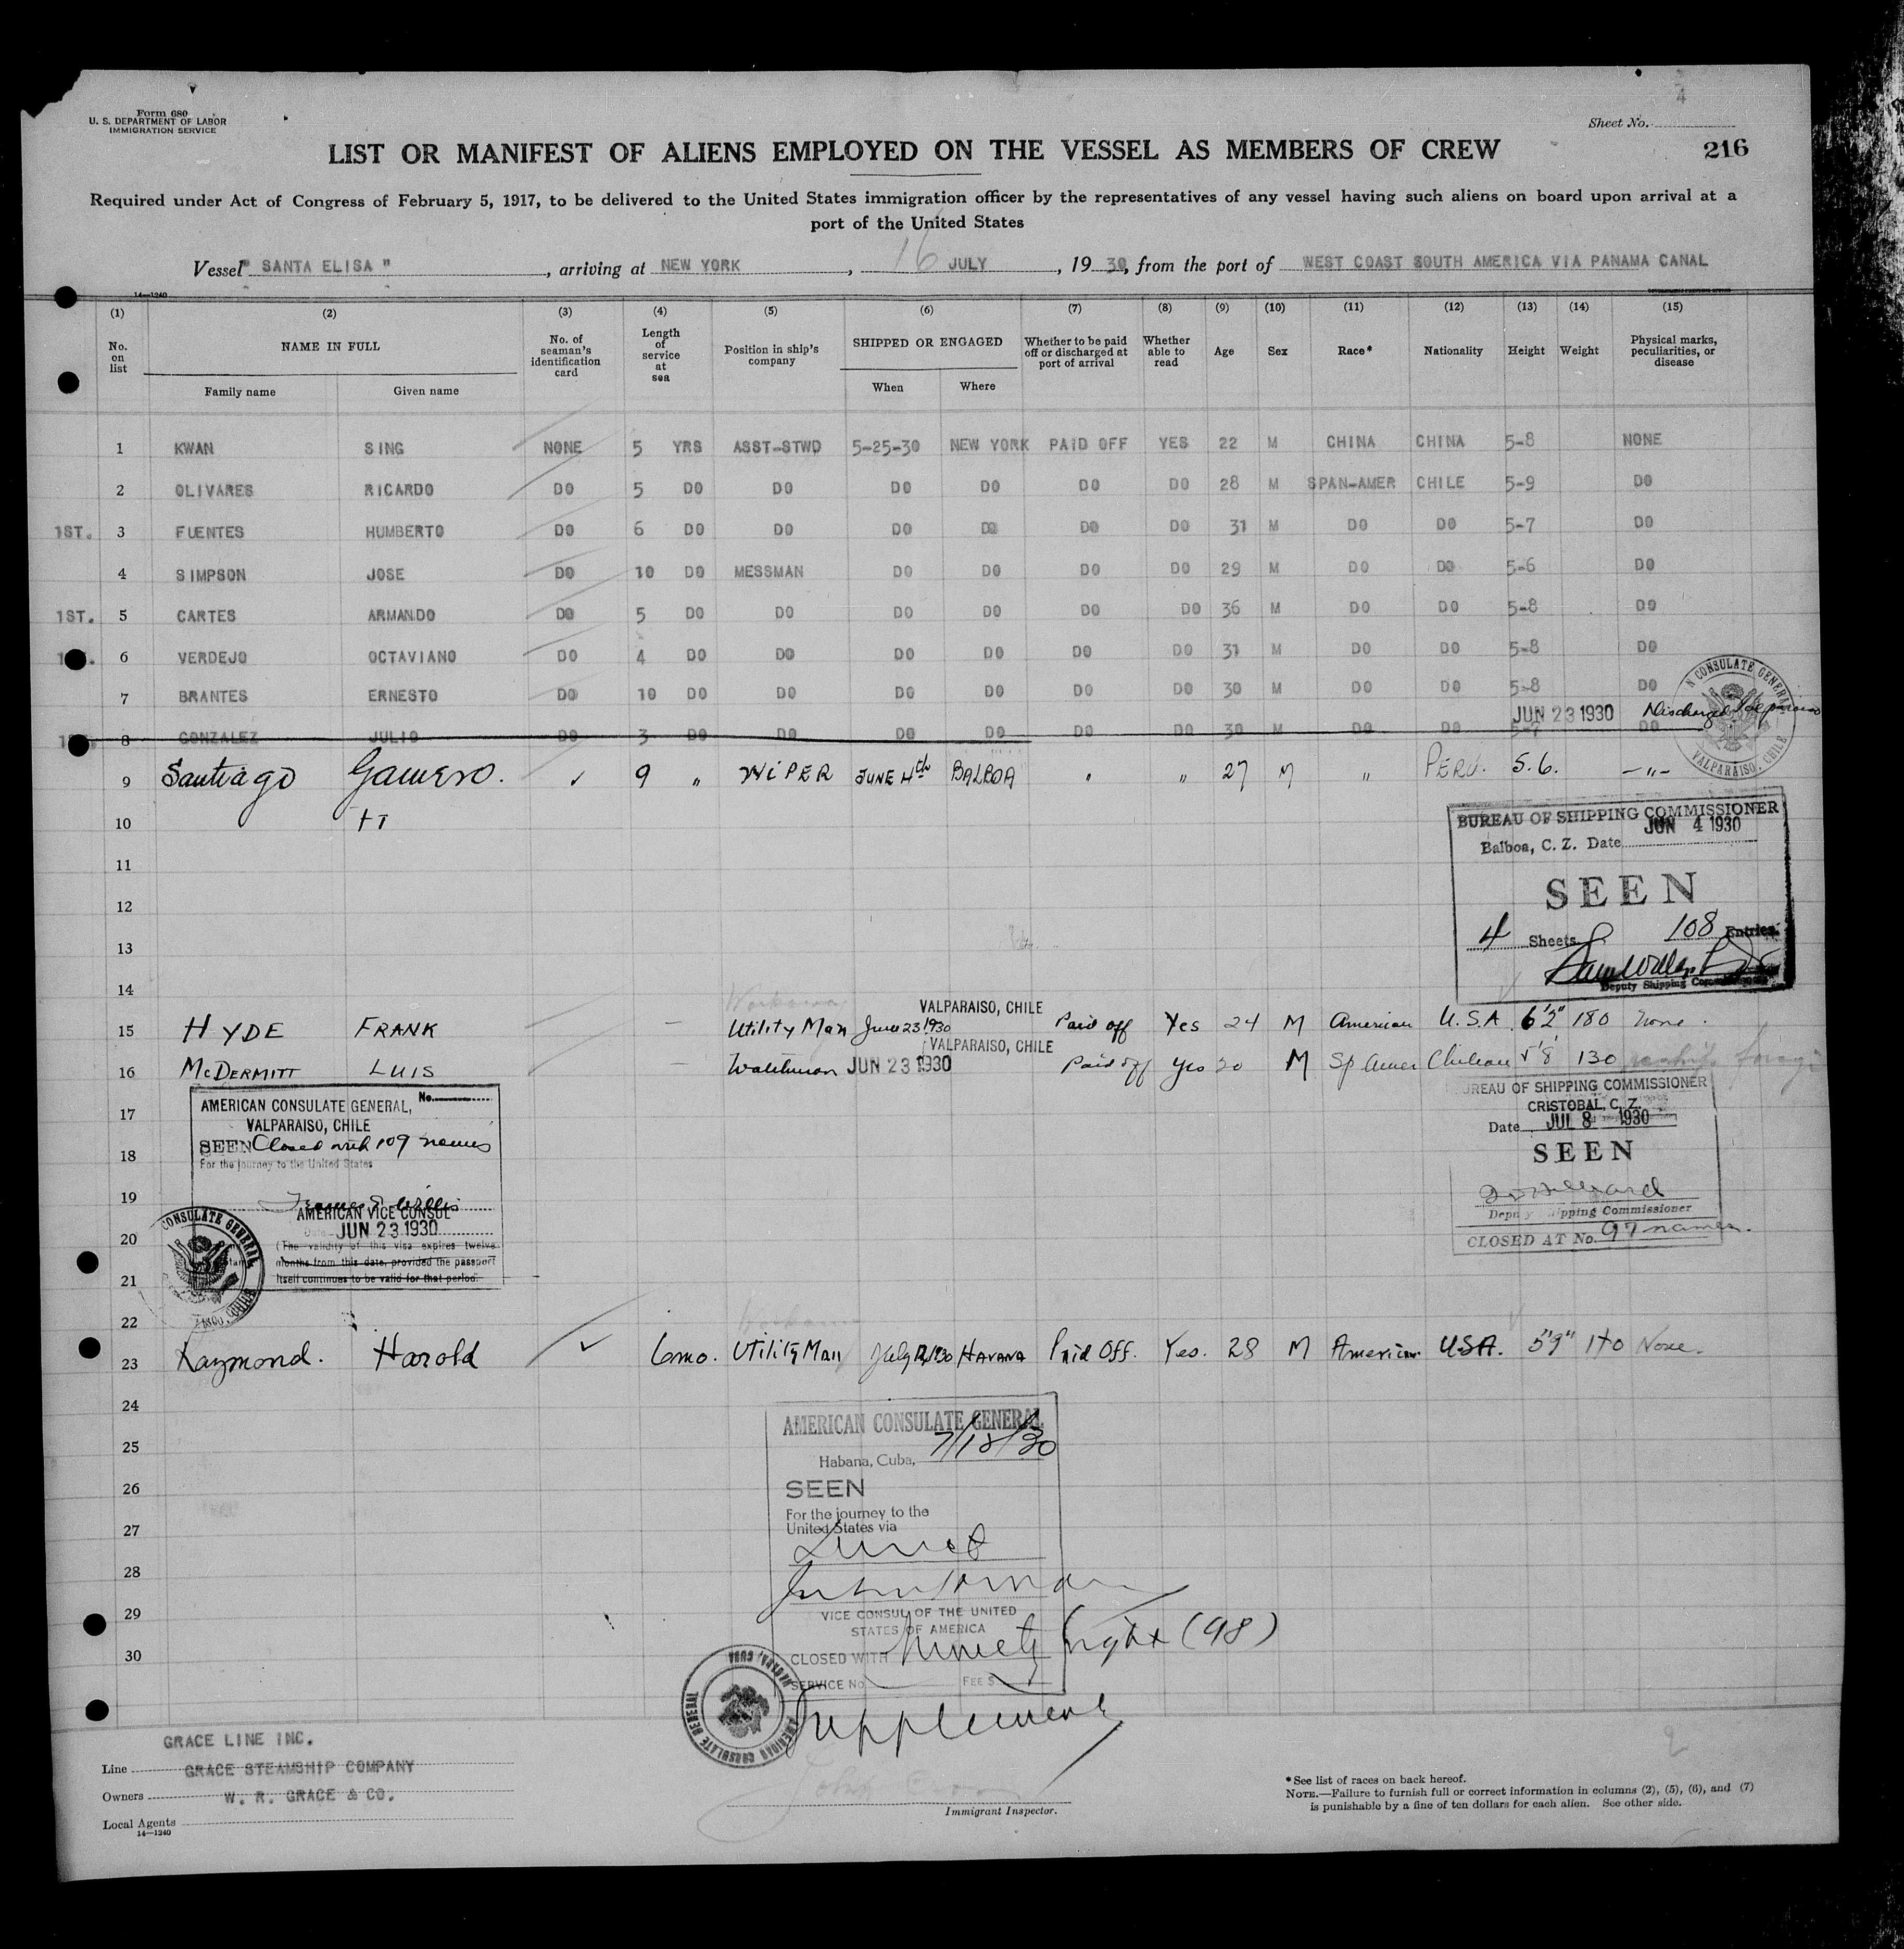 Form 680
U. S. DEPARTMENT OF LABOR
IMMIGRATION SERVICE
4
Sheet No.
216
LIST OR MANIFEST OF ALIENS EMPLOYED ON THE VESSEL AS MEMBERS OF CREW
Required under Act of Congress of February 5, 1917, to be delivered to the United States immigration officer by the representatives of any vessel having such aliens on board upon arrival at a
port of the United States
Vessel " SANTA ELISA ", arriving at NEW YORK, 16 JULY, 19 30, from the port of WEST COAST SOUTH AMERICA VIA PANAMA CANAL
14—1240
(1) (2) (3) (4) (5) (6) (7) (8) (9) (10) (11) (12) (13) (14) (15)
No. on list NAME IN FULL No. of seaman's identification card Length of service at sea Position in ship's company SHIPPED OR ENGAGED Whether to be paid off or discharged at port of arrival Whether able to read Age Sex Race* Nationality Height Weight Physical marks, peculiarities, or disease
Family name Given name When Where
1 KWAN SING NONE 5 YRS ASST-STWD 5-25-30 NEW YORK PAID OFF YES 22 M CHINA CHINA 5-8 NONE
2 OLIVARES RICARDO DO 5 DO DO DO DO DO DO 28 M SPAN-AMER CHILE 5-9 DO
1ST. 3 FUENTES HUMBERTO DO 6 DO DO DO DO DO DO 31 M DO DO 5-7 DO
4 SIMPSON JOSE DO 10 DO MESSMAN DO DO DO DO 29 M DO DO 5-6 DO
1ST. 5 CARTES ARMANDO DO 5 DO DO DO DO DO DO 36 M DO DO 5-8 DO
6 VERDEJO OCTAVIANO DO 4 DO DO DO DO DO DO 31 M DO DO 5-8 DO
7 BRANTES ERNESTO DO 10 DO DO DO DO DO DO 30 M DO DO 5-8 DO
JUN 23 1930 Discharged Valparaiso
8 GONZALEZ JULIO DO 3 DO DO DO DO DO DO 30 M DO DO 5-7 DO
CONSULATE GENERAL
VALPARAISO, CHILE
9 Santiago Gamero. ✓ 9 " WIPER JUNE 4th BALBOA " " 27 M " PERU. 5.6. —"—
10
11
12
13
14
BUREAU OF SHIPPING COMMISSIONER
Balboa, C. Z. Date JUN 4 1930
SEEN
4 Sheets 108 Entries.
Deputy Shipping Commissioner
VALPARAISO, CHILE
15 HYDE FRANK — Utility Man June 23 1930 Paid off Yes 24 M American U.S.A 6'2" 180 none.
VALPARAISO, CHILE
16 McDERMITT LUIS — Watchman JUN 23 1930 Paid off yes 20 M Sp Amer Chilean 5'8 130
17
18
19
20
21
22
AMERICAN CONSULATE GENERAL, No.
VALPARAISO, CHILE
SEEN Closed with 109 names
For the journey to the United States
AMERICAN VICE CONSUL
Date JUN 23 1930
(The validity of this visa expires twelve
months from this date, provided the passport
itself continues to be valid for that period.
CONSULATE GENERAL
BUREAU OF SHIPPING COMMISSIONER
CRISTOBAL, C. Z.
Date JUL 8 1930
SEEN
Deputy Shipping Commissioner
CLOSED AT No. 97 names.
23 Raymond. Harold ✓ 6mo. Utility Man July 12/1930 HAVANA Paid Off. Yes. 28 M American U.S.A. 5"9" 140 None.
24
25
26
27
28
29
30
AMERICAN CONSULATE GENERAL
Habana, Cuba, 7/12/30
SEEN
For the journey to the
United States via
Direct
VICE CONSUL OF THE UNITED
STATES OF AMERICA
CLOSED WITH Ninety Eight (98)
SERVICE No. FEE $
Supplement
AMERICAN CONSULATE GENERAL
HABANA, CUBA
GRACE LINE INC.
Line GRACE STEAMSHIP COMPANY
Owners W. R. GRACE & CO.
Local Agents
14—1240
Immigrant Inspector.
2
*See list of races on back hereof.
NOTE.—Failure to furnish full or correct information in columns (2), (5), (6), and (7)
is punishable by a fine of ten dollars for each alien. See other side.